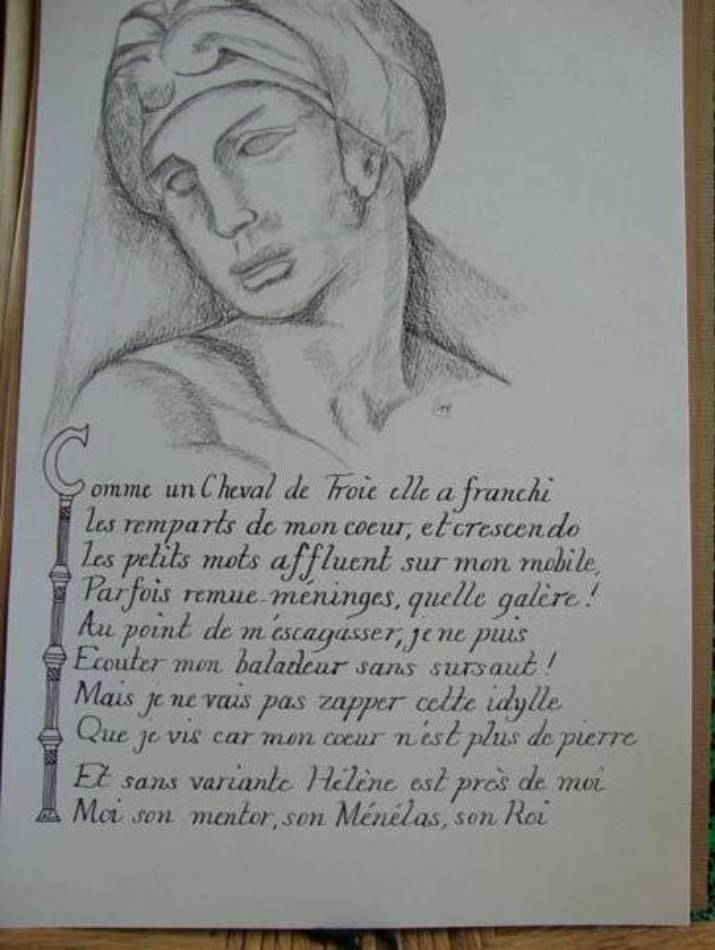 Comme un Cheval de Troie elle a franchi
les remparts de mon coeur, et crescendo
les petits mots affluent sur mon mobile,
Parfois remue-méninges, quelle galère !
Au point de m'escagasser, je ne puis
Ecouter mon baladeur sans sursaut !
Mais je ne vais pas zapper cette idylle
Que je vis car mon coeur n'est plus de pierre
Et sans variante Hélène est près de moi
Moi son mentor, son Ménélas, son Roi